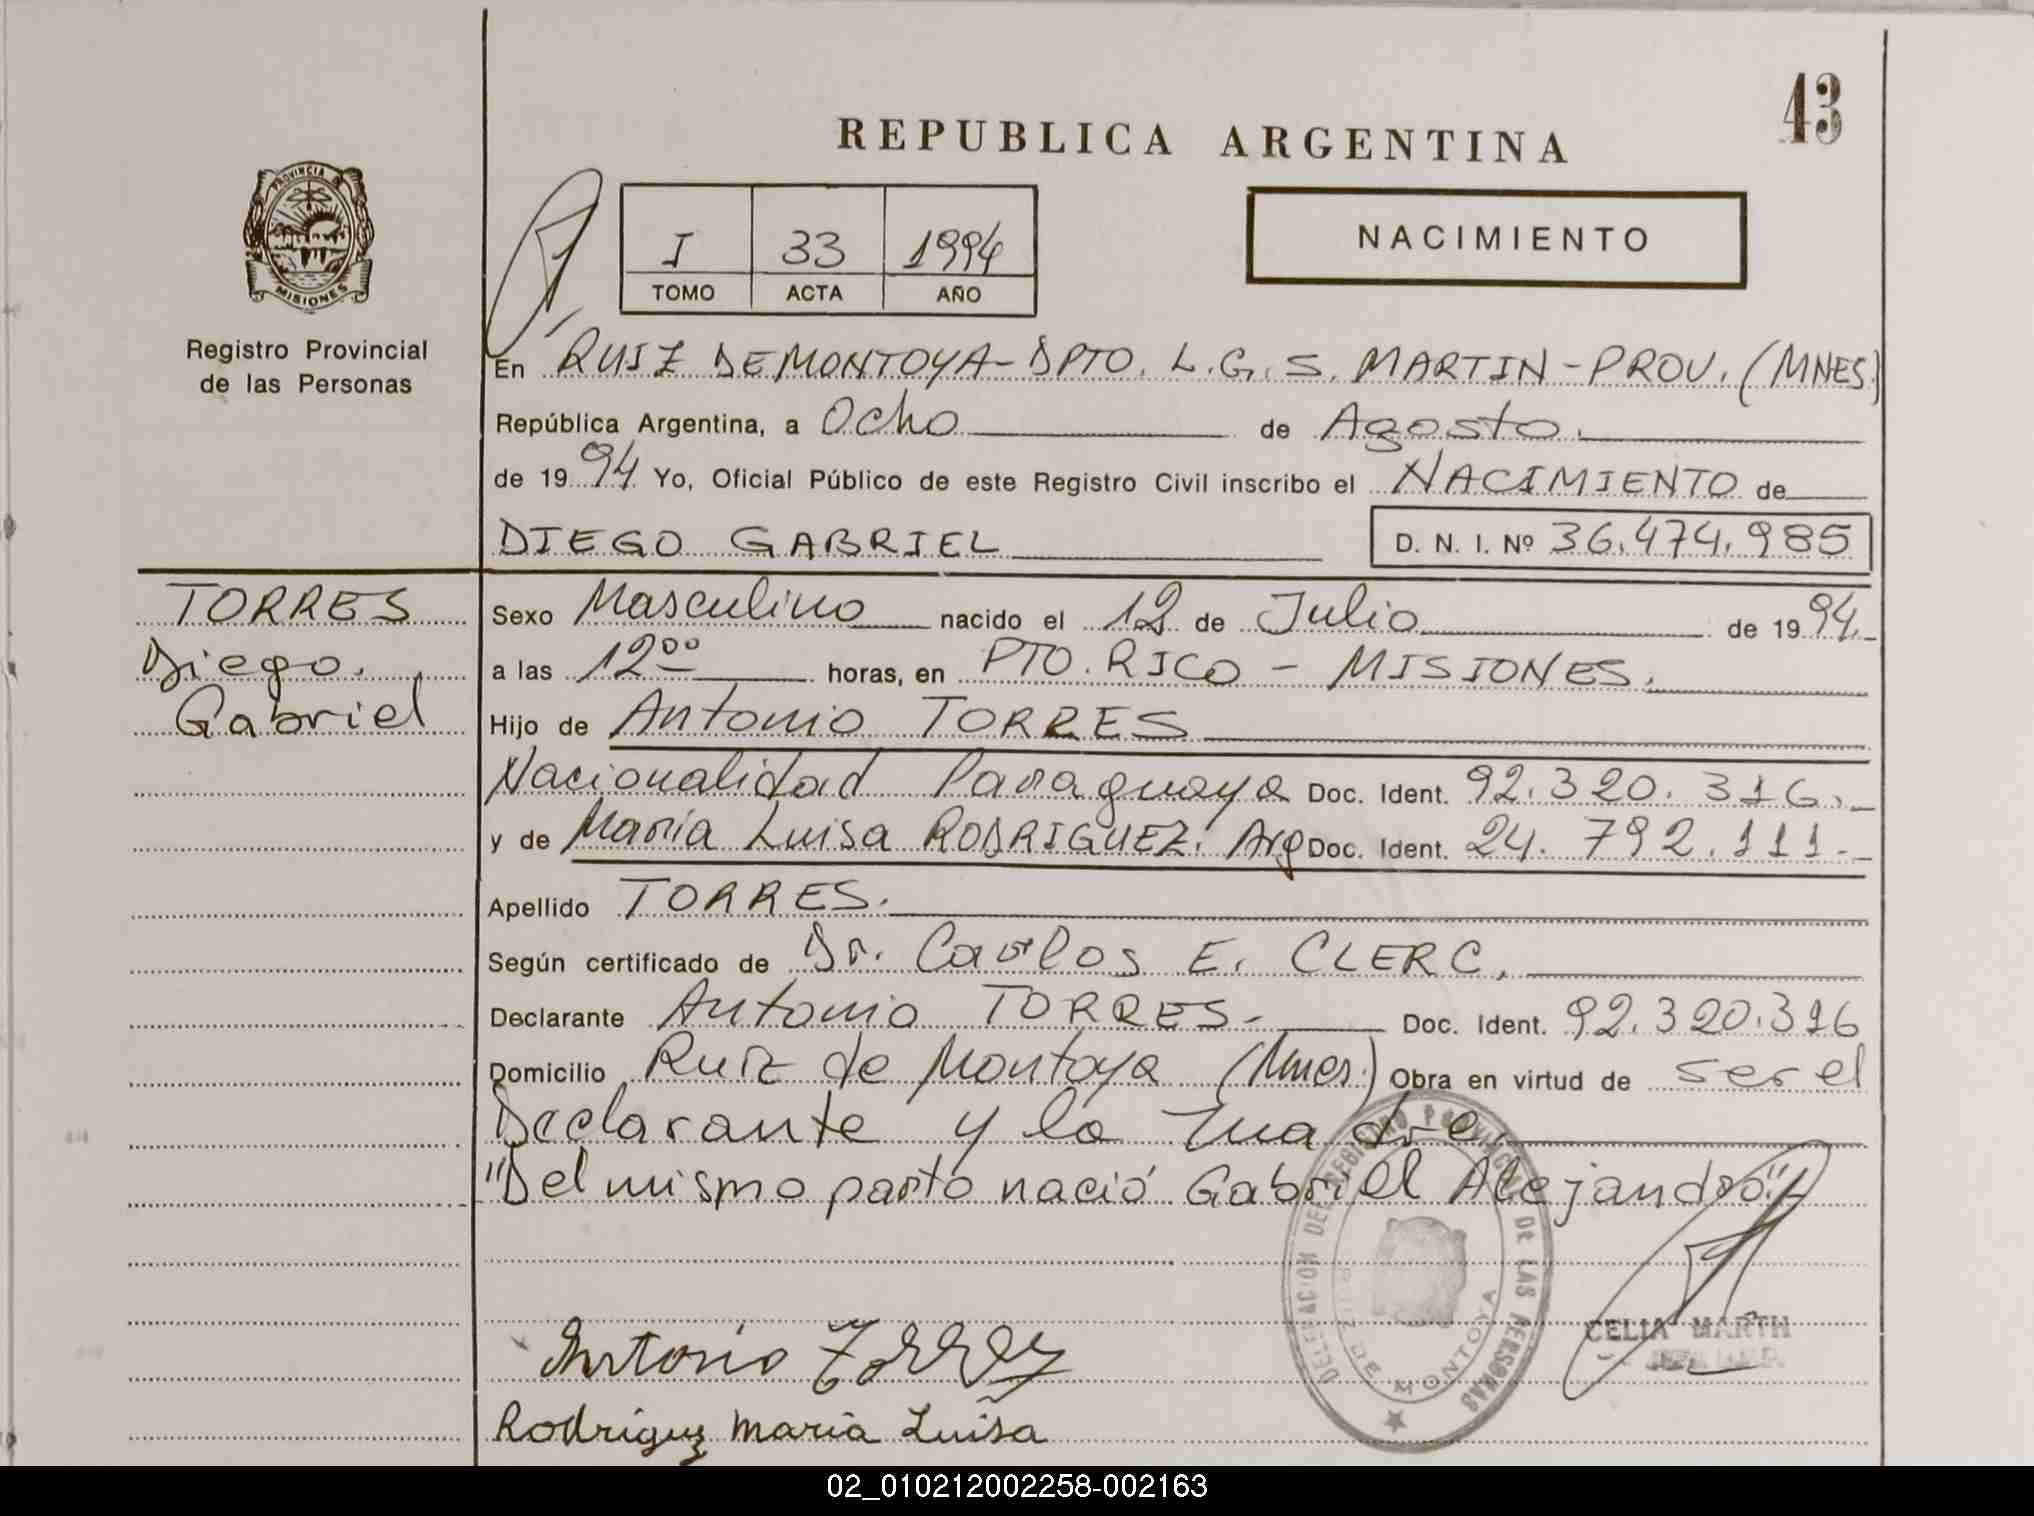 43
REPUBLICA ARGENTINA
PROVINCIA DE
MISIONES
Registro Provincial
de las Personas
I 33 1994
TOMO ACTA AÑO
NACIMIENTO
En RUIZ DE MONTOYA - DPTO. L.G.S. MARTIN - PROV. (MNES.)
República Argentina, a Ocho de Agosto.
de 1994 Yo, Oficial Público de este Registro Civil inscribo el NACIMIENTO de
DIEGO GABRIEL D. N. I. Nº 36.474.985
TORRES
Diego.
Gabriel
Sexo Masculino nacido el 12 de Julio de 1994.
a las 12 00 horas, en PTO. RICO - MISIONES.
Hijo de Antonio TORRES
Nacionalidad Paraguaya Doc. Ident. 92.320.316.
y de Maria Luisa RODRIGUEZ. Arg Doc. Ident. 24.792.111.
Apellido TORRES.
Según certificado de Dr. Carlos E. CLERC.
Declarante Antonio TORRES - Doc. Ident. 92.320.316
Domicilio Ruiz de Montoya (Mnes.) Obra en virtud de ser el
Declarante y la madre.
"Del mismo parto nació Gabriel Alejandro".
DELEGACION DEL REGISTRO PROVINCIAL DE LAS PERSONAS
RUIZ DE MONTOYA
CELIA MARTH
Antonio Torres
Rodriguez Maria Luisa
02_010212002258-002163